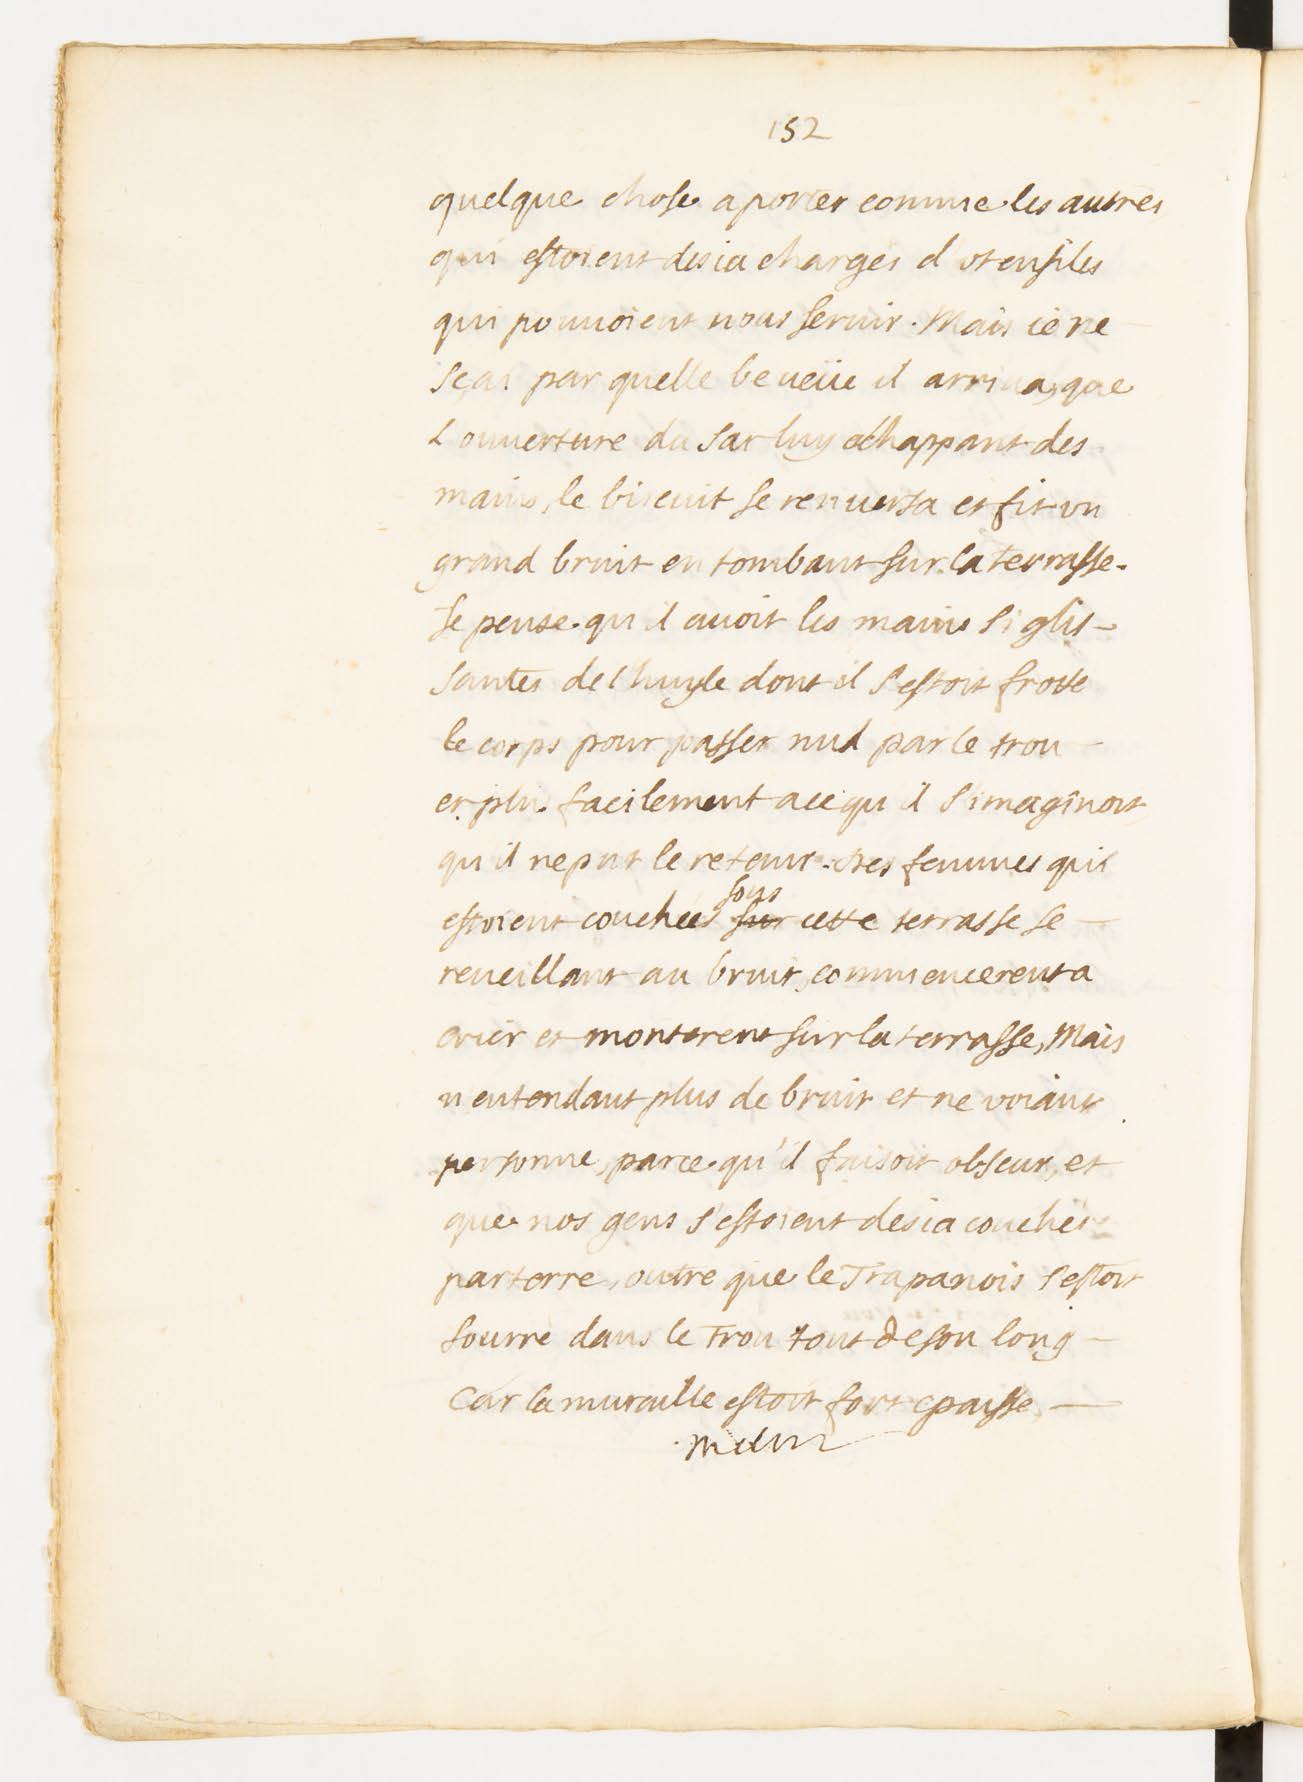 152
quelque chose a porter comme les autres
qui estoient desia chargés d'vtensiles
qui pouuoient nous seruir. Mais ie ne
sçai par quelle beueüe il arriua, que
L'ouuerture du sac luy échappant des
mains, le biscuit se renuersa et fit vn
grand bruit en tombant sur la terrasse.
Je pense qu'il auoit les mains si glis-
santes de l'huyle dont il s'estoit frotté
le corps pour passer nud par le trou
et plus facilement a ce qu'il s'imaginoit,
qu'il ne put le retenir. Les femmes qui
sous
estoient couchées sur cette terrasse se
reueillant au bruit, commencerent a
crier et monterent sur la terrasse, Mais
n'entendant plus de bruit et ne voiant
personne, parce qu'il faisoit obscur, et
que nos gens s'estoient desia couchés
par terre, outre que le Trapanois s'estoit
fourré dans le Trou tout de son long
Car la muraille estoit fort epaisse